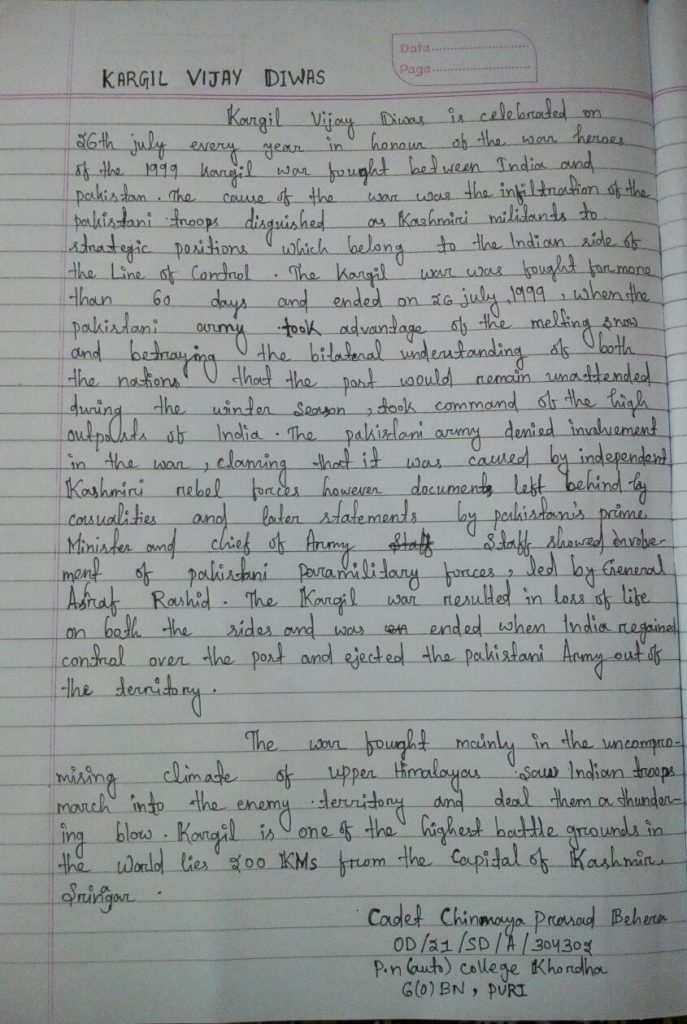 Date
Page
KARGIL VIJAY DIWAS
Kargil Vijay Diwas is celebrated on
26th july every year in honour of the war heroes
of the 1999 kargil war fought between India and
pakistan. The cause of the war was the infiltration of the
pakistani troops disguished as Kashmiri militants to
strategic positions which belong to the Indian side of
the Line of Control. The Kargil war was fought for more
than 60 days and ended on 26 july, 1999, when the
pakistani army took advantage of the melting snow
and betraying the bilateral understanding of both
the nations that the post would remain unattended
during the winter season, took command of the high
outposts of India. The pakistani army denied involvement
in the war, claming that it was caused by independent
Kashmiri rebel forces however documents left behind by
casualities and later statements by pakistan's prime
Minister and chief of Army Staff Staff showed involve-
ment of pakistani paramilitary forces, led by General
Ashraf Rashid. The Kargil war resulted in loss of life
on both the sides and was en ended when India regained
control over the post and ejected the pakistani Army out of
the territory.
The war fought mainly in the uncompro-
mising climate of upper Himalayas saw Indian troops
march into the enemy territory and deal them a thunder-
ing blow. Kargil is one of the highest battle grounds in
the World lies 200 KMs from the Capital of Kashmir,
Sringar.
Cadet Chinmaya Prasad Behera
OD/21/SD/A/304302
P.n (auto) College Khordha
6(O) BN, PURI